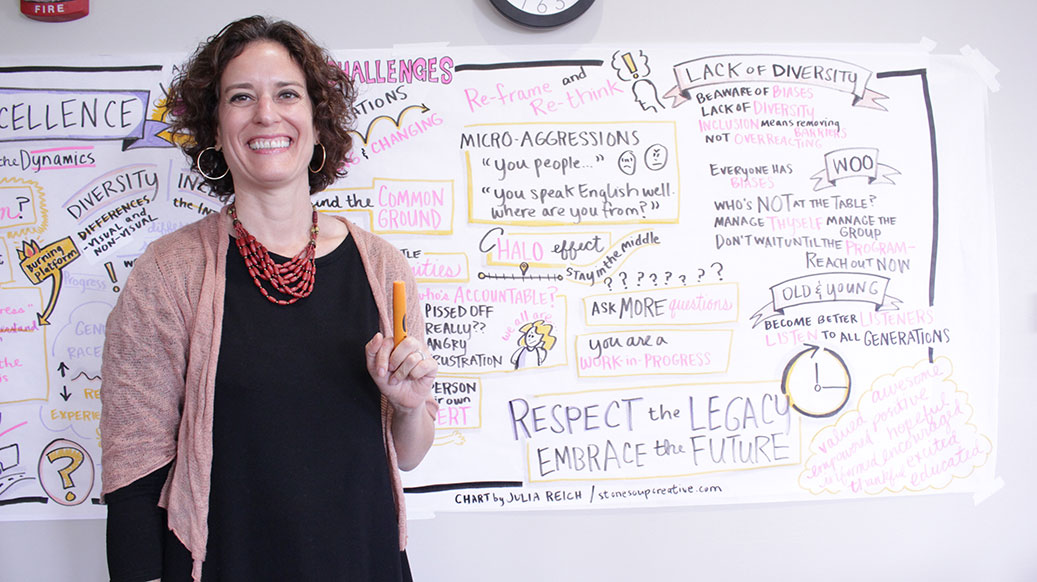 FIRE
CELLENCE
the DYNAMICS
DIVERSITY
DIFFERENCES
-VISUAL and
NON-VISUAL
Burning
platform
Progress
GEN
RACE
RE
EXPERIE
?
the IN
CHALLENGES
ATIONS
& CHANGING
nd the COMMON
GROUND
who's ACCOUNTABLE?
PISSED OFF
REALLY??
ANGRY
RUSTRATION
we all are
PERSON
ir own
ERT
Re-frame and
Re-think
MICRO-AGGRESSIONS
"you people..."
"you speak English well.
where are you from?"
HALO effect
STAY in the middle
? ? ? ? ? ? ?
ASK MORE questions
you are a
WORK-in-PROGRESS
RESPECT the LEGACY
EMBRACE the FUTURE
LACK OF DIVERSITY
BEAWARE OF BIASES
LACK OF DIVERSITY
INCLUSION MEANS removing
BARRIERS
NOT OVERREACTING
WOO
EVERYONE HAS
BIASES
WHO'S NOT AT THE TABLE?
MANAGE THYSELF MANAGE THE
GROUP
DON'T WAIT UNTIL THE PROGRAM-
REACH OUT NOW
OLD & YOUNG
BECOME BETTER LISTENERS
LISTEN TO ALL GENERATIONS
valued awesome
empowered positive
hopeful
informed encouraged
thankful excited
educated
CHART by JULIA REICH / stonesoupcreative.com